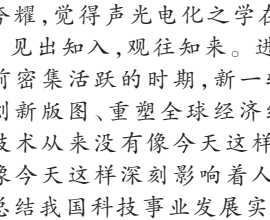 夸耀,觉得声光电化之学在
见出知入,观往知来。进
前密集活跃的时期,新一
创新版图、重塑全球经济
技术从来没有像今天这样
像今天这样深刻影响着人
总结我国科技事业发展实